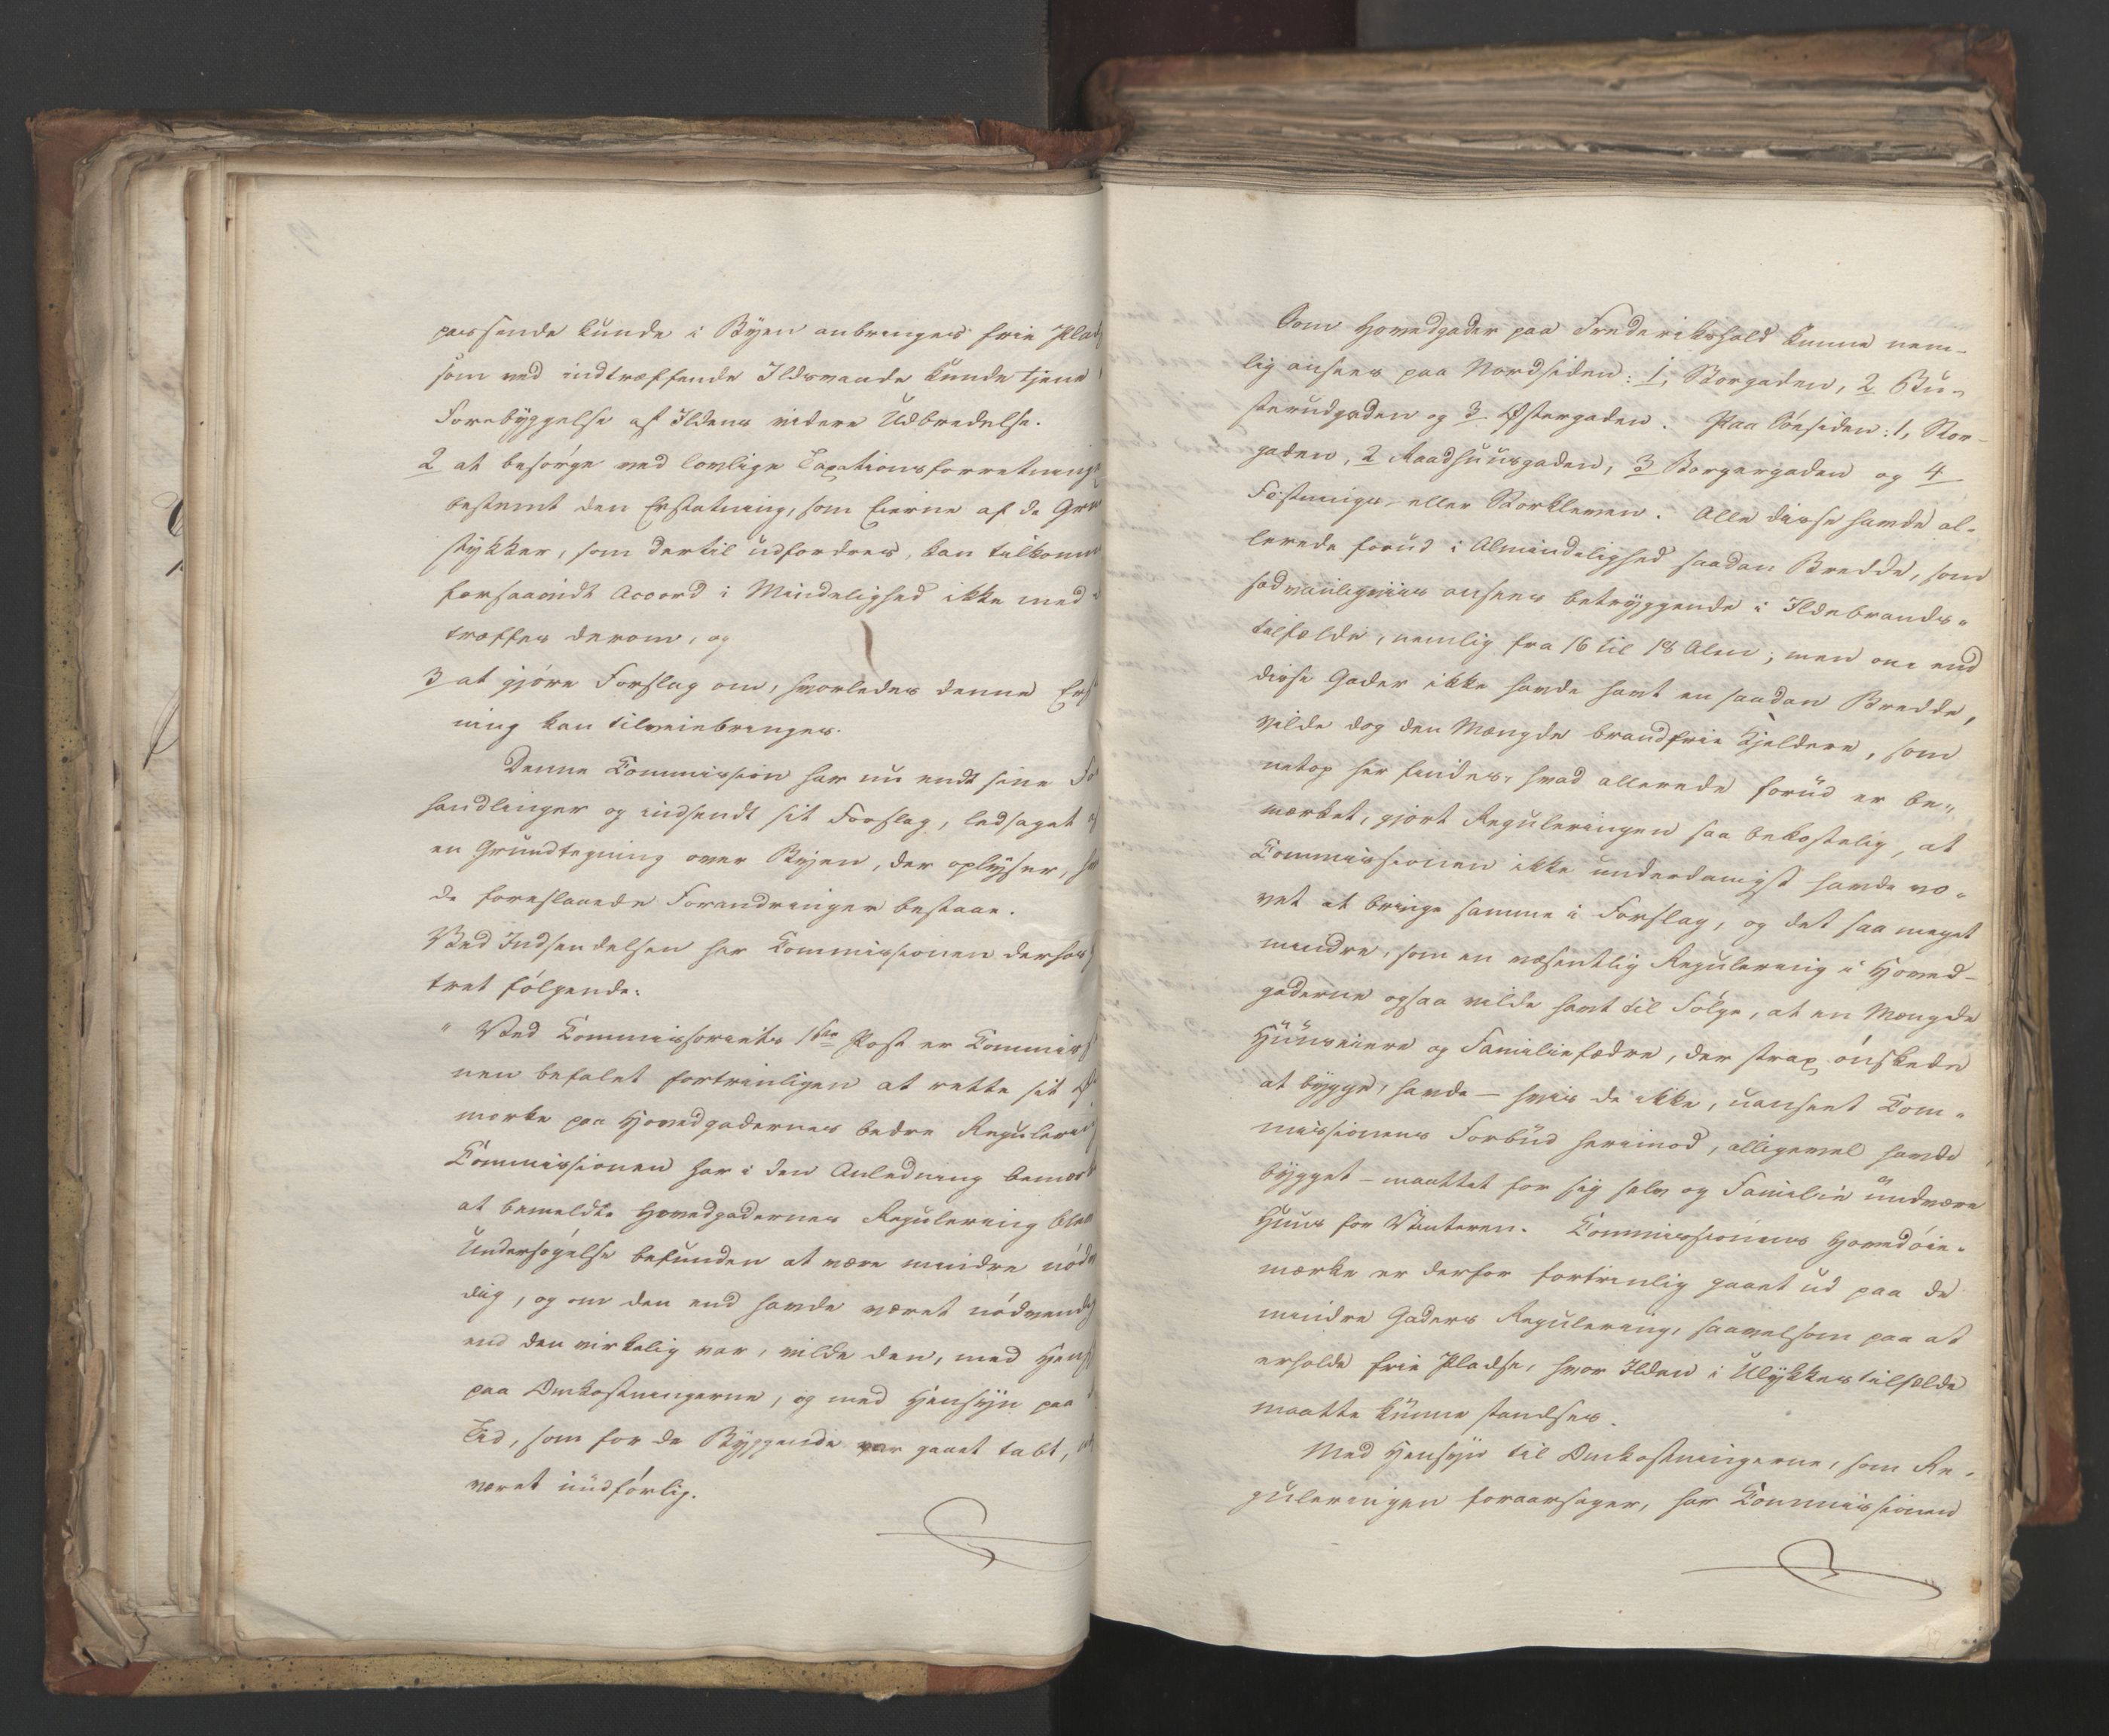 passende kunde i Byen anbringes frie Plad
som ved indtræffende Ildsvaade kunde tjene
Forebyggelse af Ildens videre Udbredelse.
2 at besørge ved lovlige Taxationsforretning
bestemt den Erstatning, som Eierne af de Gru
stykker, som dertil udfordres, kan tilkomme
forsaavidt Accord i Mindelighed ikke med
træffes derom, og
3 at gjøre Forslag om, hvorledes denne Erst
ning kan tilveiebringes.
Denne Commission har nu endt sine For
handlinger og indsendt sit Forslag, ledsaget af
en Grundtegning over Byen, der oplyser, hvor
de foreslaaede Forandringer bestaae.
Ved Indsendelsen har Commissionen derhos
tret følgende:
" Ved Commissoriets 1ste Post er Commiss
nen befalet fortrinligen at rette sit Øie
mærke paa Hovedgadernes bedre Regulering
Commissionen har i den Anledning bemærk
at bemeldte Hovedgadernes Regulering blev
Undersøgelse befunden at være mindre nødv
dig, og om den end havde været nødvendig
end den virkelig var, vilde den, med Hens
paa Omkostningerne, og med Hensyn paa d
Tid, som for de Byggende var gaaet tabt,
været uudførlig.
Som Hovedgader paa Frederikshald kunne nem-
lig ansees paa Nordsiden: 1, Storgaden, 2 Bu-
sterudgaden og 3 Østergaden. Paa Sønsiden: 1, Stor-
gaden, 2 Raadhuusgaden, 3 Borgergaden og 4
Festnings- eller Storkleven. Alle disse havde al-
lerede forud i Almindelighed saadan Bredde, som
sædvanligviis ansees betryggende i Ildebrands-
tilfælde, nemlig fra 16 til 18 Alen; men om end
disse Gader ikke havde havt en saadan Bredde,
vilde dog den Mængde brandfrie Kjeldere, som
netop her findes, hvad allerede forud er be-
mærket, gjort Reguleringen saa bekostelig, at
Commissionen ikke underdanigst havde vo-
vet at bringe samme i Forslag, og det saa meget
mindre, som en væsentlig Regulering i Hoved-
gaderne ogsaa vilde havt til Følge, at en Mængde
Huuseiere og Familiefædre, der strax ønskede
at bygge, havde – hvis de ikke, uanseet Com-
missionens Forbud herimod, alligevel havde
bygget – maattet for sig selv og Familie undvære
Huus for Vinteren. Commissionens Hovedøie-
mærke er derfor fortrinlig gaaet ud paa de
mindre Gaders Regulering, saavelsom paa at
erholde frie Pladse, hvor Ilden i Ulykkestilfælde
maatte kunne standses.
Med Hensyn til Omkostningerne, som Re-
guleringen foraarsager, har Commissionen